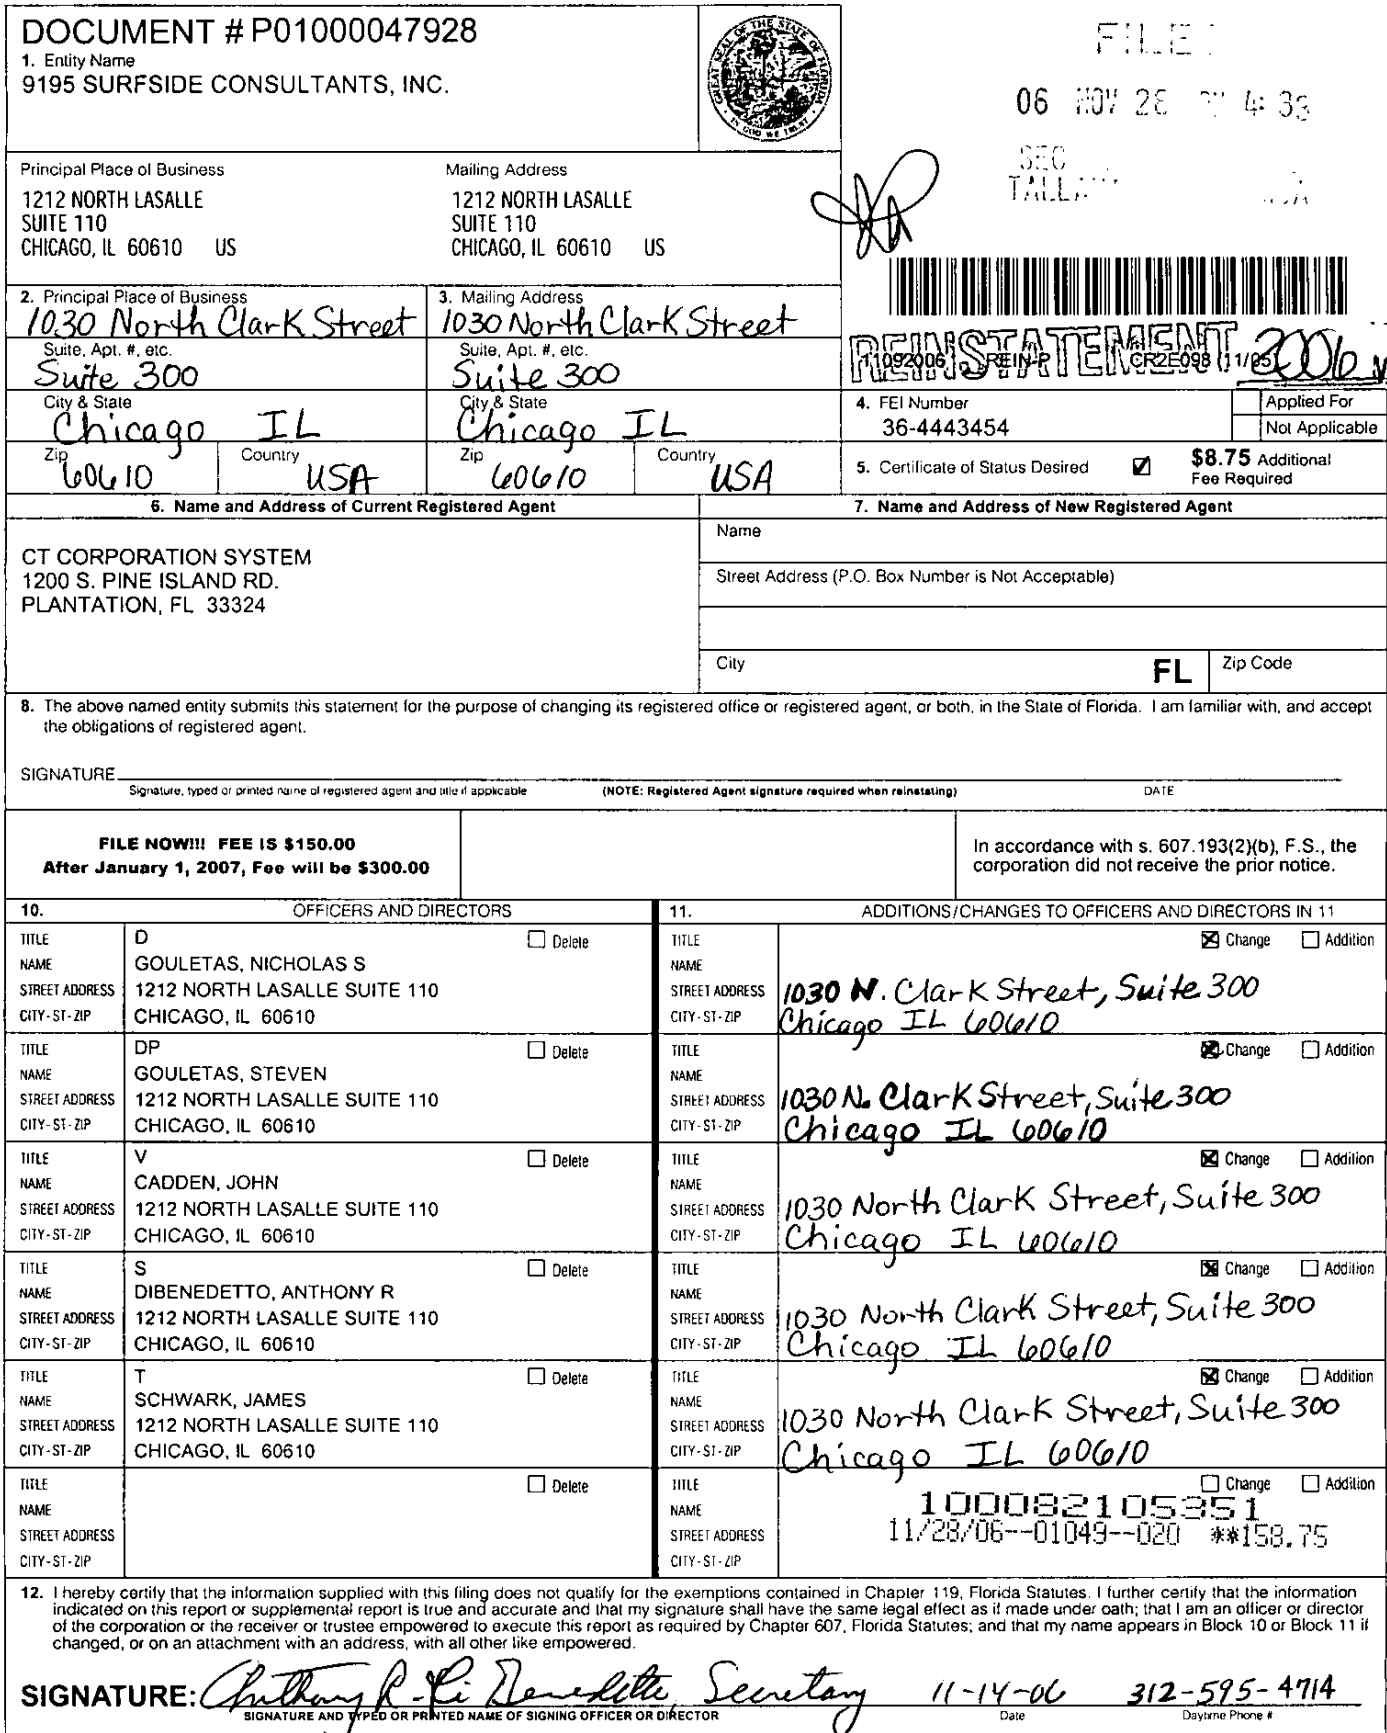 DOCUMENT # P01000047928
1. Entity Name
9195 SURFSIDE CONSULTANTS, INC.
GREAT SEAL OF THE STATE OF FLORIDA
IN GOD WE TRUST
FILE
06 NOV 28 4:33
SEC
TALLA
Principal Place of Business
1212 NORTH LASALLE
SUITE 110
CHICAGO, IL 60610 US
Mailing Address
1212 NORTH LASALLE
SUITE 110
CHICAGO, IL 60610 US
2. Principal Place of Business
1030 North Clark Street
Suite, Apt. #, etc.
Suite 300
City & State
Chicago IL
Zip
60610
Country
USA
3. Mailing Address
1030 North Clark Street
Suite, Apt. #, etc.
Suite 300
City & State
Chicago IL
Zip
60610
Country
USA
REINSTATEMENT 2006
11092006 REIN-P CR2E098 (11/05)
4. FEI Number
36-4443454
Applied For
Not Applicable
5. Certificate of Status Desired
$8.75 Additional
Fee Required
6. Name and Address of Current Registered Agent
CT CORPORATION SYSTEM
1200 S. PINE ISLAND RD.
PLANTATION, FL 33324
7. Name and Address of New Registered Agent
Name
Street Address (P.O. Box Number is Not Acceptable)
City
FL
Zip Code
8. The above named entity submits this statement for the purpose of changing its registered office or registered agent, or both, in the State of Florida. I am familiar with, and accept
the obligations of registered agent.
SIGNATURE
Signature, typed or printed name of registered agent and title if applicable
(NOTE: Registered Agent signature required when reinstating)
DATE
FILE NOW!!! FEE IS $150.00
After January 1, 2007, Fee will be $300.00
In accordance with s. 607.193(2)(b), F.S., the
corporation did not receive the prior notice.
10. OFFICERS AND DIRECTORS
TITLE D Delete
NAME GOULETAS, NICHOLAS S
STREET ADDRESS 1212 NORTH LASALLE SUITE 110
CITY-ST-ZIP CHICAGO, IL 60610
TITLE DP Delete
NAME GOULETAS, STEVEN
STREET ADDRESS 1212 NORTH LASALLE SUITE 110
CITY-ST-ZIP CHICAGO, IL 60610
TITLE V Delete
NAME CADDEN, JOHN
STREET ADDRESS 1212 NORTH LASALLE SUITE 110
CITY-ST-ZIP CHICAGO, IL 60610
TITLE S Delete
NAME DIBENEDETTO, ANTHONY R
STREET ADDRESS 1212 NORTH LASALLE SUITE 110
CITY-ST-ZIP CHICAGO, IL 60610
TITLE T Delete
NAME SCHWARK, JAMES
STREET ADDRESS 1212 NORTH LASALLE SUITE 110
CITY-ST-ZIP CHICAGO, IL 60610
TITLE Delete
NAME
STREET ADDRESS
CITY-ST-ZIP
11. ADDITIONS/CHANGES TO OFFICERS AND DIRECTORS IN 11
TITLE Change Addition
NAME
STREET ADDRESS 1030 N. Clark Street, Suite 300
CITY-ST-ZIP Chicago IL 60610
TITLE Change Addition
NAME
STREET ADDRESS 1030 N. Clark Street, Suite 300
CITY-ST-ZIP Chicago IL 60610
TITLE Change Addition
NAME
STREET ADDRESS 1030 North Clark Street, Suite 300
CITY-ST-ZIP Chicago IL 60610
TITLE Change Addition
NAME
STREET ADDRESS 1030 North Clark Street, Suite 300
CITY-ST-ZIP Chicago IL 60610
TITLE Change Addition
NAME
STREET ADDRESS 1030 North Clark Street, Suite 300
CITY-ST-ZIP Chicago IL 60610
TITLE Change Addition
NAME 100082105351
STREET ADDRESS 11/28/06--01049--020 **158.75
CITY-ST-ZIP
12. I hereby certify that the information supplied with this filing does not qualify for the exemptions contained in Chapter 119, Florida Statutes. I further certify that the information
indicated on this report or supplemental report is true and accurate and that my signature shall have the same legal effect as if made under oath; that I am an officer or director
of the corporation or the receiver or trustee empowered to execute this report as required by Chapter 607, Florida Statutes; and that my name appears in Block 10 or Block 11 if
changed, or on an attachment with an address, with all other like empowered.
SIGNATURE: Anthony R. Di Benedetto, Secretary 11-14-06 312-595-4714
SIGNATURE AND TYPED OR PRINTED NAME OF SIGNING OFFICER OR DIRECTOR Date Daytime Phone #